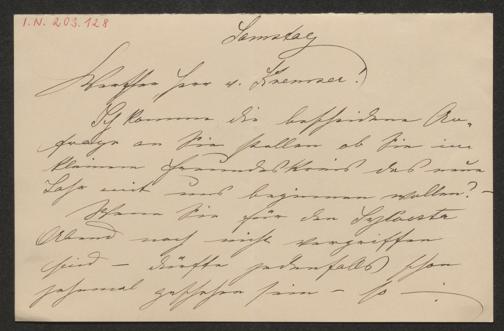 I.N. 203.128
Samstag
Werther Herr v. Kremser!
Ich komme die bescheidene An-
frage an Sie stellen ob Sie im
kleinen Freundeskreis das neue
Jahr mit uns beginnen wollen? –
Wenn Sie für den Sylvester
Abend noch nicht vergriffen
sind – dürfte jedenfalls schon
zehnmal geschehen sein – so –